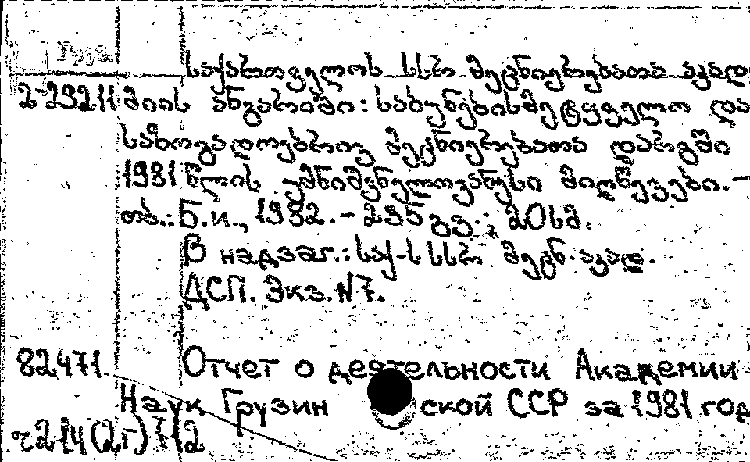 Груз.
საქართველოს სსრ მეცნიერებათა აკად
2-29211 მიის ანგარიში: საბუნებისმეტყველო და
საზოგადოებრივ მეცნიერებათა დარგში
1981 წლის უმნიშვნელოვანესი მიღწევები.—
თბ.: Б.и., 1982.- 235 გვ.; 20სმ.
В надзаг.: საქ-ს სსრ მეცნ. აკად.
ДСП. Экз. №7.
82471. Отчет о деятельности Академии
Наук Грузинской ССР за 1981 год